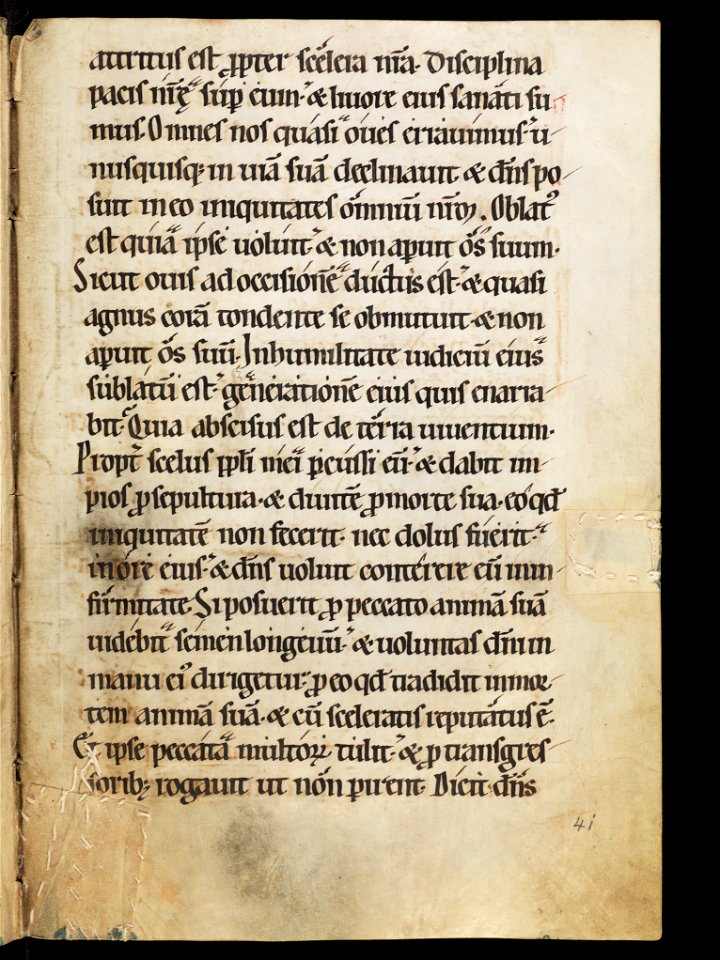 attritus est ꝓpter scelera nr̄a. Disciplina
pacis nr̄ę sup̄ eum. & liuore eius sanati su-
mus. Omnes nos quasi oues errauimus. u-
nusquisq; in uiā suā declinauit. & dn̄s po-
suit in eo iniquitates om̄niū nr̄oꝝ. Oblatꝰ
est quia ipse uoluit. & non aꝑuit os suum.
Sicut ouis ad occisionē ductus est. & quasi
agnus corā tondente se obmutuit. & non
aꝑuit os suū. In humilitate iudiciū eius
sublatū est. generationē eius quis enarra-
bit. Quia abscisus est de terra uiuentium.
Propt̄ scelus ppl̄i mei ꝑcussi eū. & dabit im-
pios ꝓ sepultura. & diuitē ꝓ morte sua. eo qđ
iniquitatē non fecerit. nec dolus fuerit.
in ore eius. & dn̄s uoluit conterere eū in in-
firmitate. Si posuerit ꝓ peccato animā suā
uidebit semen longeuū. & uoluntas dn̄i in
manu eiꝰ dirigetur. ꝓ eo qđ tradidit in mor-
tem animā suā. & cū sceleratis reputatus ē.
Et ipse peccata multoꝝ tulit. & ꝓ transgres-
sorib; rogauit ut non ꝑirent. Dicit dn̄s
41